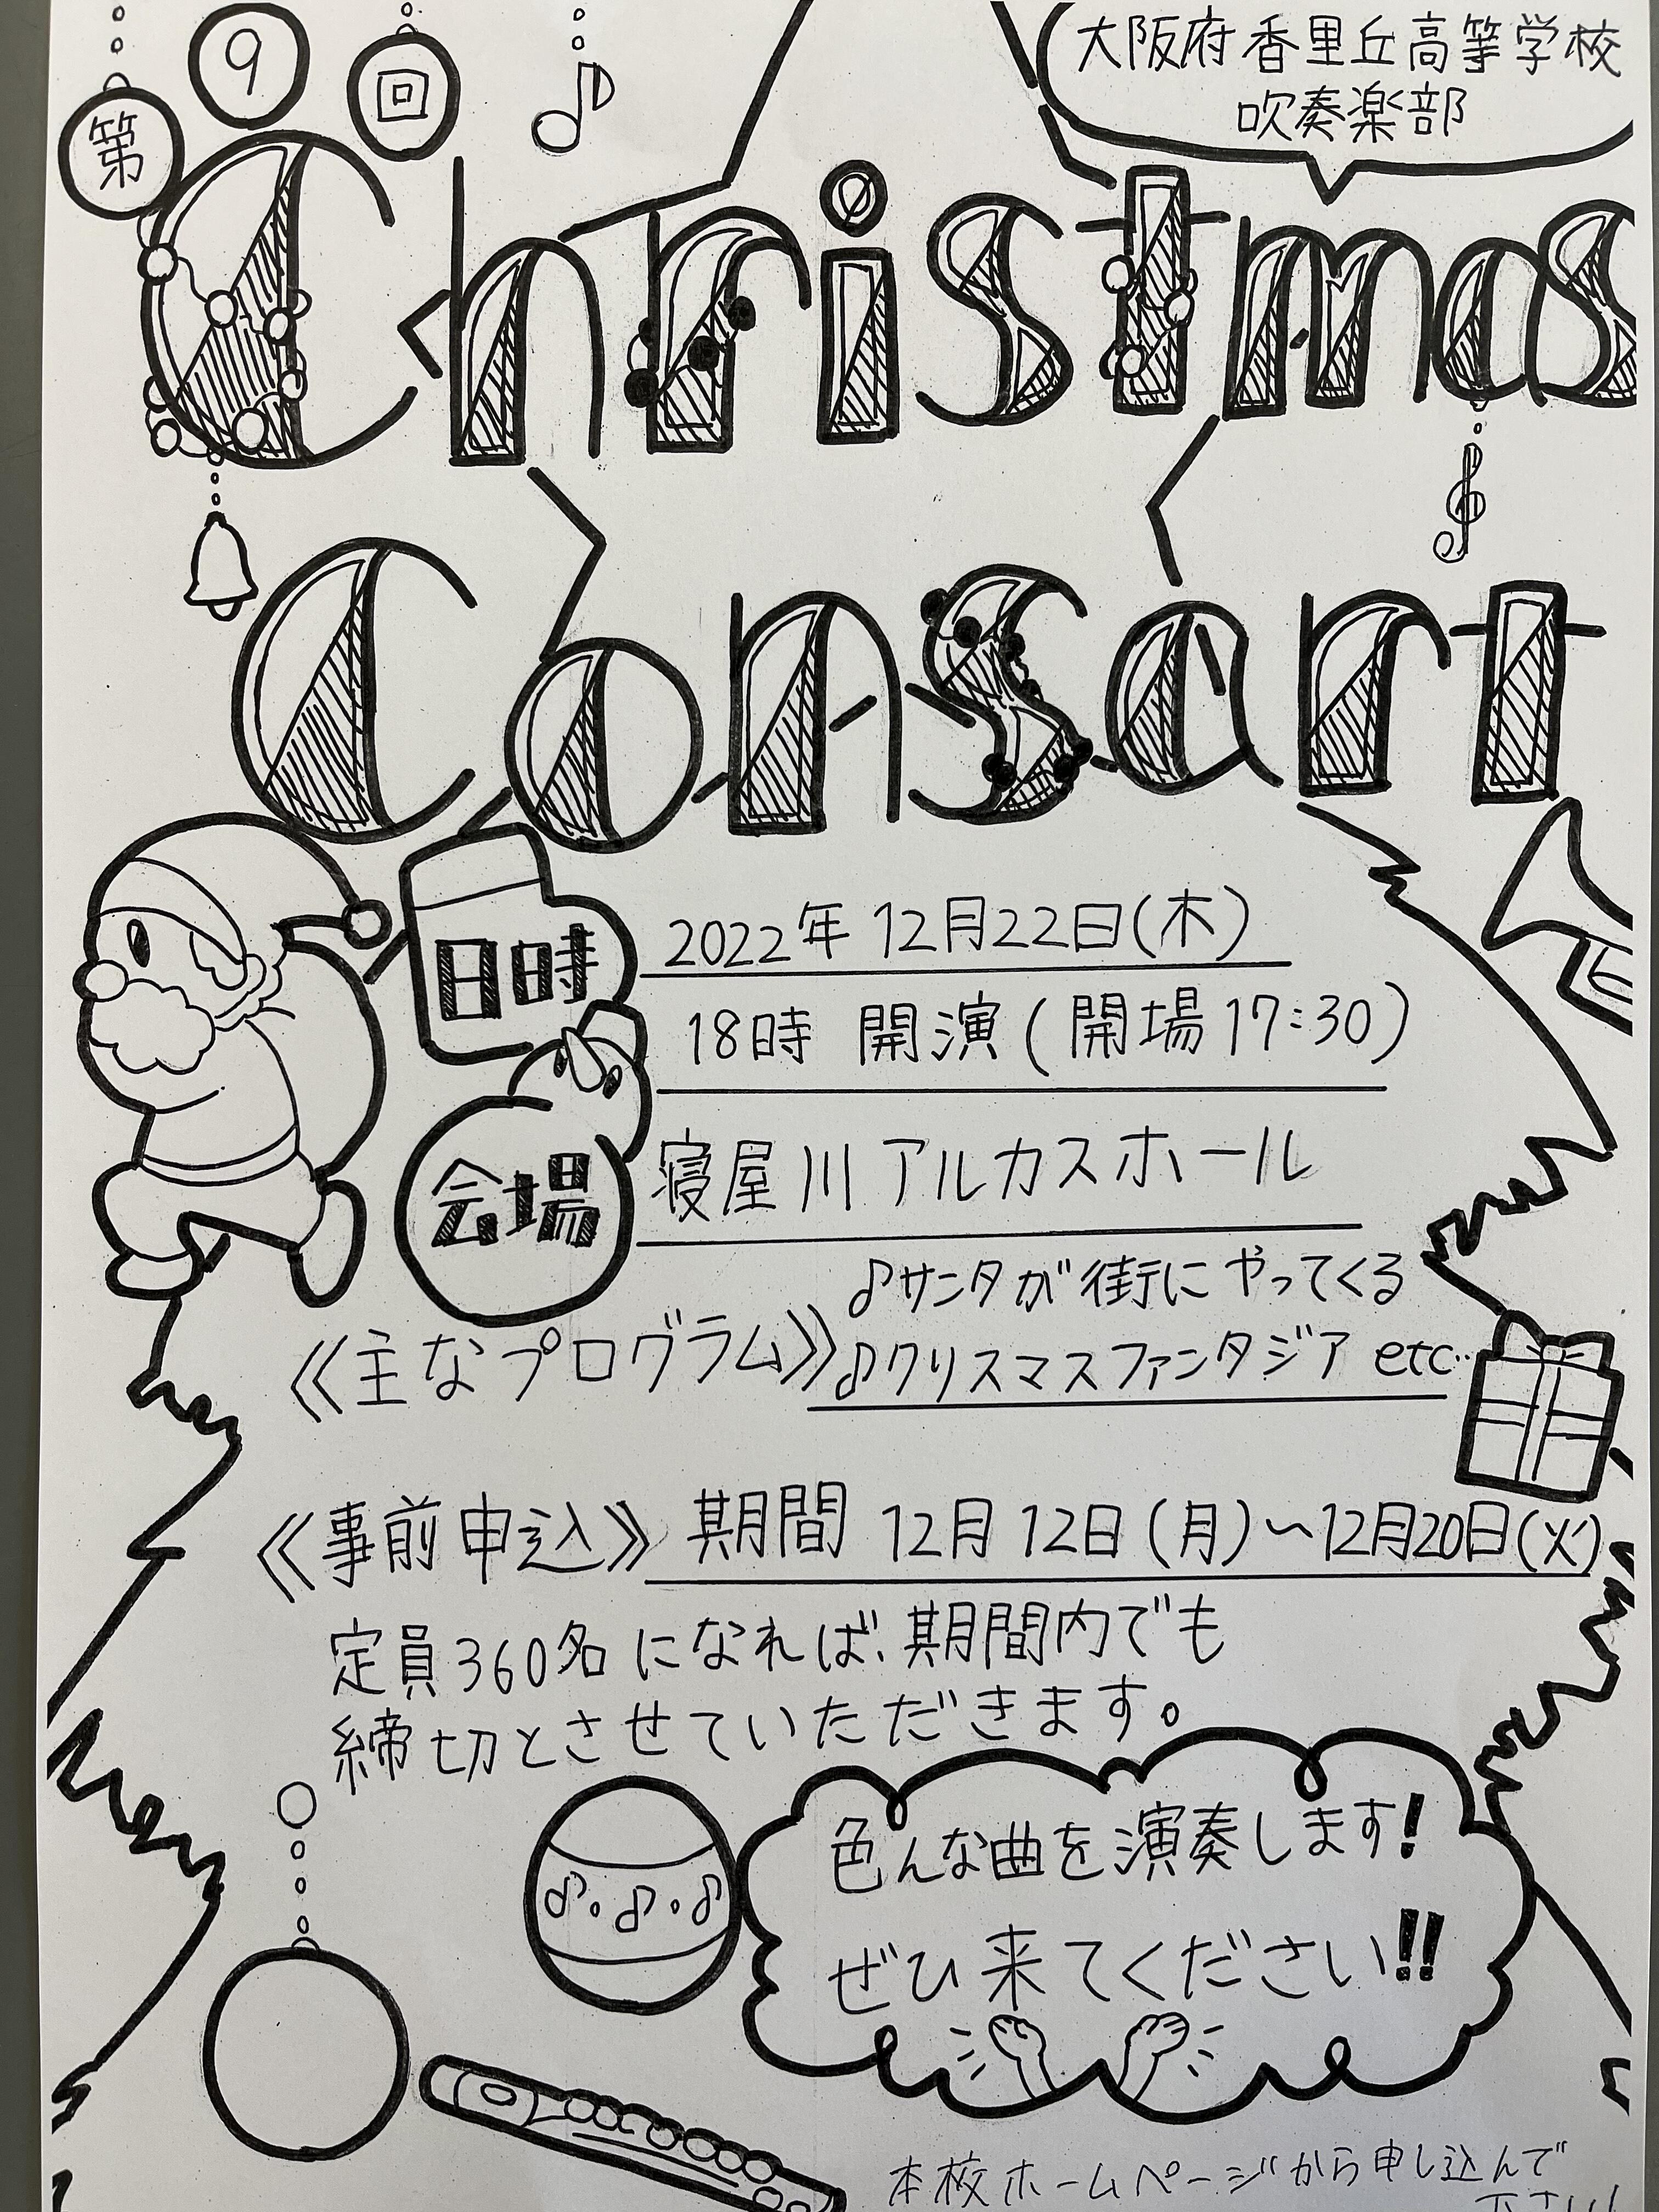 第9回
大阪府香里丘高等学校
吹奏楽部
Christmas
Consart
日時
2022年 12月22日(木)
18時 開演(開場17:30)
会場
寝屋川アルカスホール
《主なプログラム》
♪サンタが街にやってくる
♪クリスマスファンタジア etc…
《事前申込》 期間 12月12日(月)〜12月20日(火)
定員360名になれば、期間内でも
締切とさせていただきます。
色んな曲を演奏します!
ぜひ来てください!!
本校ホームページから申し込んで